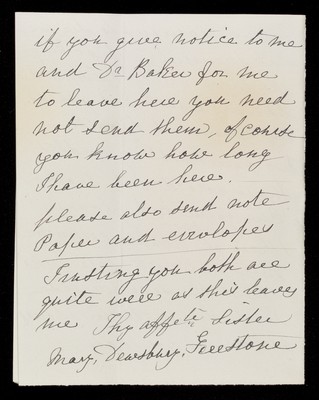 if you give notice to me
and Dr Baker for me
to leave here you need
not send them, of course
you know how long
I have been here.
please also send note
Paper and envelopes
Trusting you both are
quite well as this leaves
me Thy affete Sister
Mary, Dewsbury, Firestone